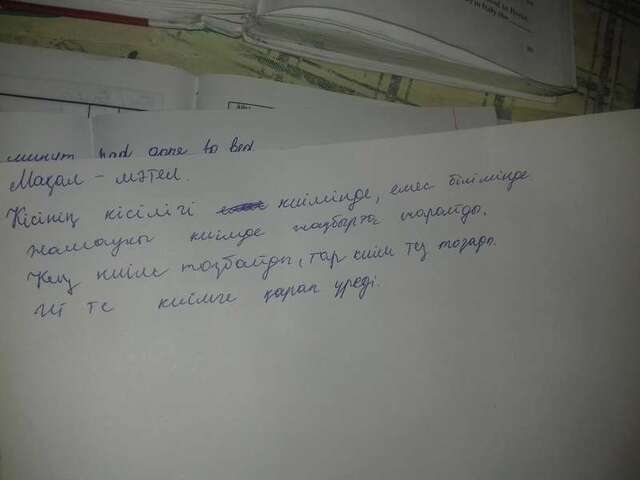 had gone to bed
Мақал – мәтел.
Кісінің кісілігі киімінде, емес білімінде
жамаулы киімде жаңбырға жаралды.
Кең киім тозбайды, тар киім тез тозады.
Ит те киімге қарап үреді.